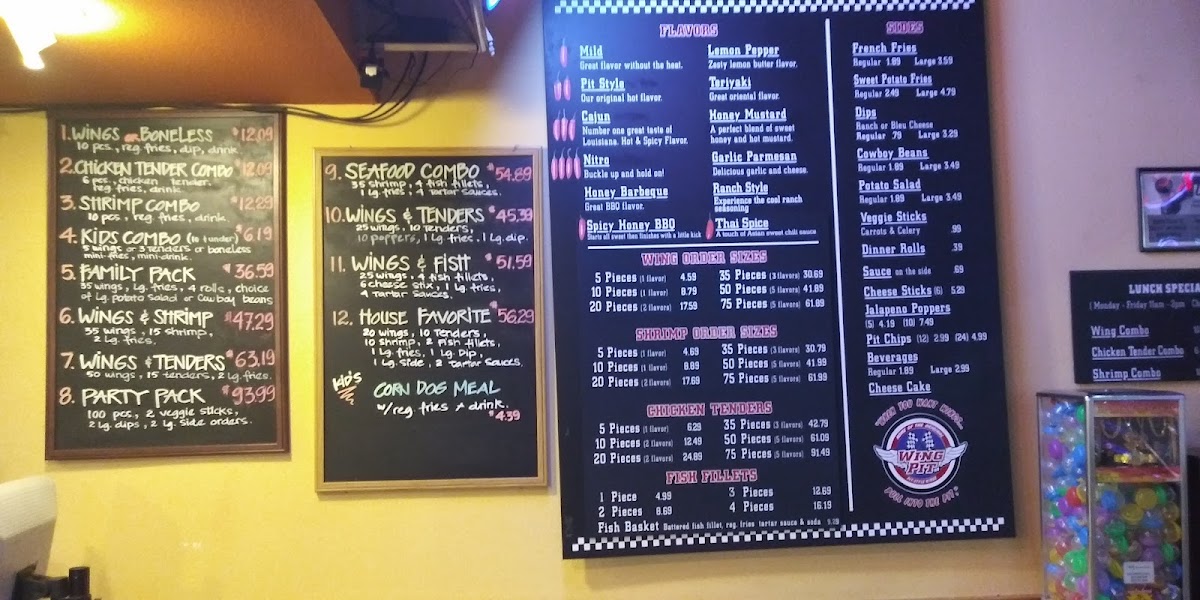 1. WINGS or BONELESS $12.09
10 pcs, reg. fries, dip, drink
2. CHICKEN TENDER COMBO $12.09
6 pcs. chicken tender.
reg fries, drink
3. SHRIMP COMBO $12.29
10 pcs, reg fries, drink.
4. KIDS COMBO (10 & under) $6.19
3 wings or 3 tenders or boneless
mini-fries, mini-drink.
5. FAMILY PACK $36.59
35 wings, Lg. fries, 4 rolls, choice
of Lg. potato salad or Cowboy beans
6. WINGS & SHRIMP $47.29
35 wings, 15 shrimp,
2 Lg. fries.
7. WINGS & TENDERS $63.19
50 wings, 15 tenders, 2 Lg. fries.
8. PARTY PACK $93.99
100 pcs, 2 veggie sticks,
2 Lg dips, 2 Lg. side orders.
9. SEAFOOD COMBO $54.89
35 shrimp, 4 fish fillets,
1 Lg. fries, 4 tartar sauces.
10. WINGS & TENDERS $45.39
25 wings, 10 Tenders,
10 poppers, 1 Lg fries, 1 Lg. dip.
11. WINGS & FISH $51.59
25 wings, 4 fish fillets,
6 cheese stix, 1 Lg fries,
4 Tartar Sauces.
12. HOUSE FAVORITE $56.29
20 wings, 10 Tenders,
10 shrimp, 2 Fish fillets,
1 Lg fries, 1 Lg. Dip
1 Lg. side, 2 Tartar Sauces.
Kid's
CORN DOG MEAL
w/reg. fries & drink.
$4.39
FLAVORS
Mild
Great flavor without the heat.
Pit Style
Our original hot flavor.
Cajun
Number one great taste of
Louisiana. Hot & Spicy Flavor.
Nitro
Buckle up and hold on!
Honey Barbeque
Great BBQ flavor.
Spicy Honey BBQ
Starts off sweet then finishes with a little kick
Lemon Pepper
Zesty lemon butter flavor.
Teriyaki
Great oriental flavor.
Honey Mustard
A perfect blend of sweet
honey and hot mustard.
Garlic Parmesan
Delicious garlic and cheese.
Ranch Style
Experience the cool ranch
seasoning
Thai Spice
A touch of Asian sweet chili sauce
WING ORDER SIZES
5 Pieces (1 flavor) 4.59 35 Pieces (3 flavors) 30.69
10 Pieces (1 flavor) 8.79 50 Pieces (5 flavors) 41.89
20 Pieces (2 flavors) 17.59 75 Pieces (5 flavors) 61.89
SHRIMP ORDER SIZES
5 Pieces (1 flavor) 4.69 35 Pieces (3 flavors) 30.79
10 Pieces (1 flavor) 8.89 50 Pieces (5 flavors) 41.99
20 Pieces (2 flavors) 17.69 75 Pieces (5 flavors) 61.99
CHICKEN TENDERS
5 Pieces (1 flavor) 6.29 35 Pieces (3 flavors) 42.79
10 Pieces (2 flavors) 12.49 50 Pieces (5 flavors) 61.09
20 Pieces (2 flavors) 24.89 75 Pieces (5 flavors) 91.49
FISH FILLETS
1 Piece 4.99 3 Pieces 12.69
2 Pieces 8.69 4 Pieces 16.19
Fish Basket Battered fish fillet, reg. fries tartar sauce & soda
SIDES
French Fries
Regular 1.89 Large 3.59
Sweet Potato Fries
Regular 2.49 Large 4.79
Dips
Ranch or Bleu Cheese
Regular .79 Large 3.29
Cowboy Beans
Regular 1.89 Large 3.49
Potato Salad
Regular 1.89 Large 3.49
Veggie Sticks
Carrots & Celery .99
Dinner Rolls .39
Sauce on the side .69
Cheese Sticks (6) 5.29
Jalapeno Poppers
(5) 4.19 (10) 7.49
Pit Chips (12) 2.99 (24) 4.99
Beverages
Regular 1.89 Large 2.99
Cheese Cake
"WHEN YOU WANT WINGS...
WING
PIT
PULL INTO THE PIT!"
LUNCH SPECIA
(Monday - Friday 11am - 2pm
Wing Combo
Chicken Tender Combo
Shrimp Combo